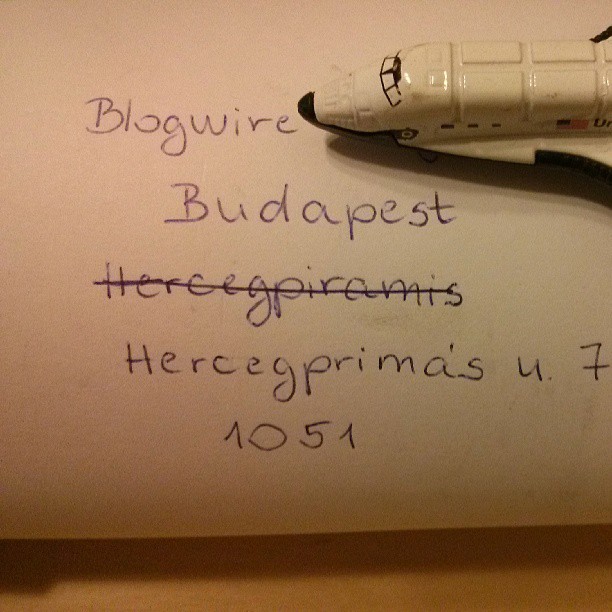 Blogwire
Budapest
Hercegpiramis
Hercegprimás u. 7
1051